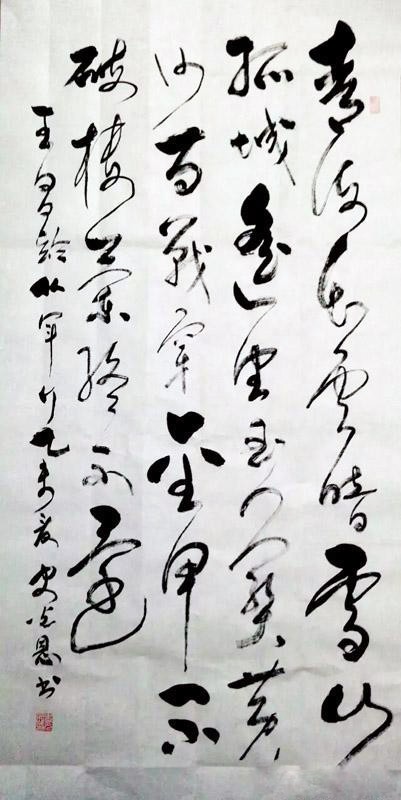 青海长雲暗雪山
孤城遥望玉门關黄
沙百戰穿金甲不
破楼蘭终不還
王昌龄从军行乙未夏史恩书